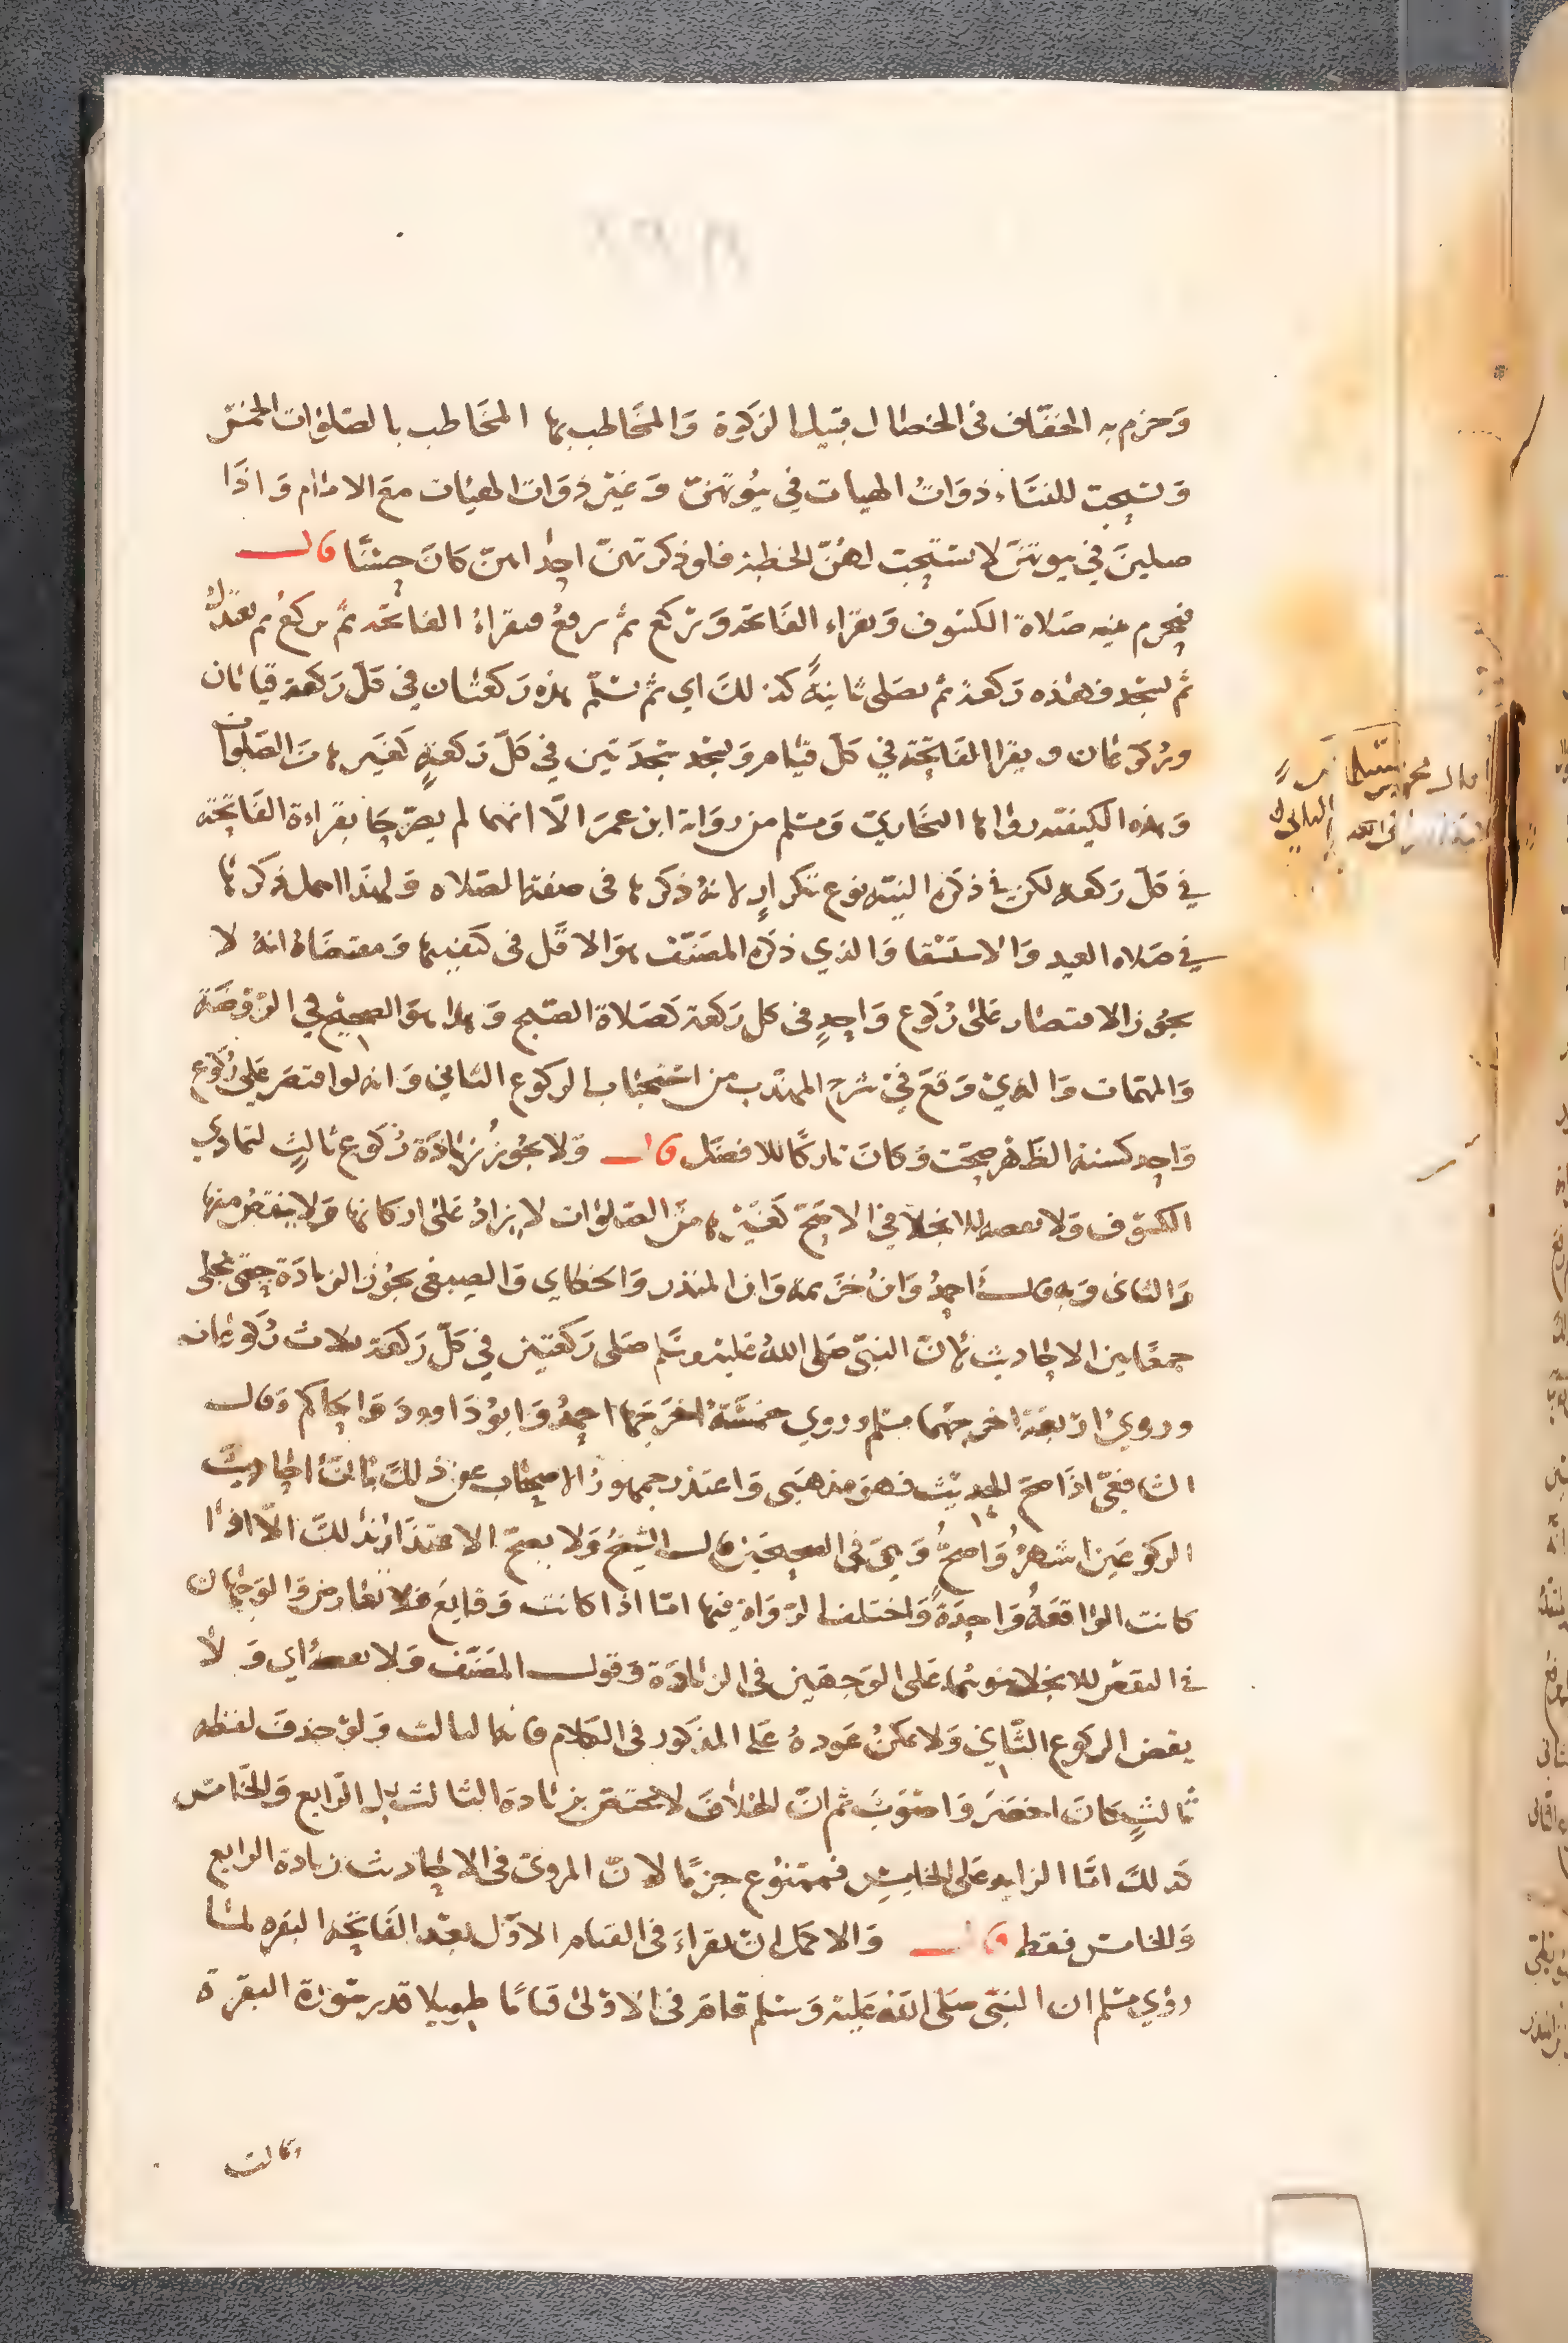 وجزم به الخفاف في الخصال قبيل الزكوة والمخاطب بها المخاطب بالصلوات الخمس
وتستحب للنساء ذوات الهيات في بيوتهن وغير ذوات الهيات مع الامام واذا
صلين في بيوتهن لا تستحب لهن الخطبة فلو ذكرتهن احداهن كان حسنا قال
فيحرم بنية صلاة الكسوف ويقراء الفاتحة ويركع ثم يرفع فيقراء الفاتحة ثم يركع ثم يعتدل
ثم يسجد فهذه ركعة ثم يصلي ثانية كذلك اي ثم يسلم هذه ركعتان في كل ركعة قيامان
وركوعان ويقرا الفاتحة في كل قيام ويسجد سجدتين في كل ركعة كغيرها من الصلوات
وهذه الكيفية رواها البخاري ومسلم من رواية ابن عمر الا انهما لم يصرحا بقراءة الفاتحة
في كل ركعة لكن في ذكره النية نوع تكرار لانه ذكرها في صفة الصلاه ولهذا اهمل ذكرها
في صلاه العيد والاستسقا والذي ذكره المصنف هو الاقل في كيفيتها ومقتضاه انه لا
يجوز الاقتصار على ركوع واحد في كل ركعة كصلاة الصبح وهذا هو الصحيح في الروضة
والمهمات والذي وقع في شرح المهذب من استحباب الركوع الثاني وانه لو اقتصر على ركوع
واحد كسنة الظهر صحت وكان تاركا للافضل قال ولا يجوز زيادة ركوع ثالث لتمادي
الكسوف ولا نقصه للانجلا في الاصح كغيرها من الصلوات لا يزاد على اركانها ولا ينقص منها
والثاني وبه قال احمد وابن خزيمة وابن المنذر والخطابي والصبغي يجوز الزيادة حتى تنجلي
جمعا بين الاحاديث بان النبي صلى الله عليه وسلم صلى ركعتين في كل ركعة ثلاث ركوعات
وروي اربعة اخرجهما مسلم وروي خمسة اخرجها احمد وابو داوود والحاكم وقال
الشافعي اذا صح الحديث فهو مذهبي واعتذر جمهور الاصحاب عن ذلك بان احاديث
الركوعين اشهر واصح وهي في الصحيحين قال الشيخ ولا يصح الاعتذار بذلك الا اذا
كانت الواقعة واحدة واختلف الرواة فيها اما اذا كانت وقايع فلا تعارض والوجهان
في النقص للانجلا هما على الوجهين في الزيادة وقول المصنف ولا نقصه اي ولا
يقص الركوع الثاني ولا يمكن عوده على المذكور في الكلام فانه الثالث ولو حذف لفظه
ثالث لكان اخصر واصوب ثم ان الخلاف لا يختص بزيادة الثالث بل الرابع والخامس
كذلك اما الزايد على الخامس فممنوع جزما لان المروي في الاحاديث زيادة الرابع
والخامس فقط قال والاكمل ان يقراء في القيام الاول بعد الفاتحه البقره لما
روي مسلم ان النبي صلى الله عليه وسلم قام في الاولى قياما طويلا قدر سورة البقرة
وقالت